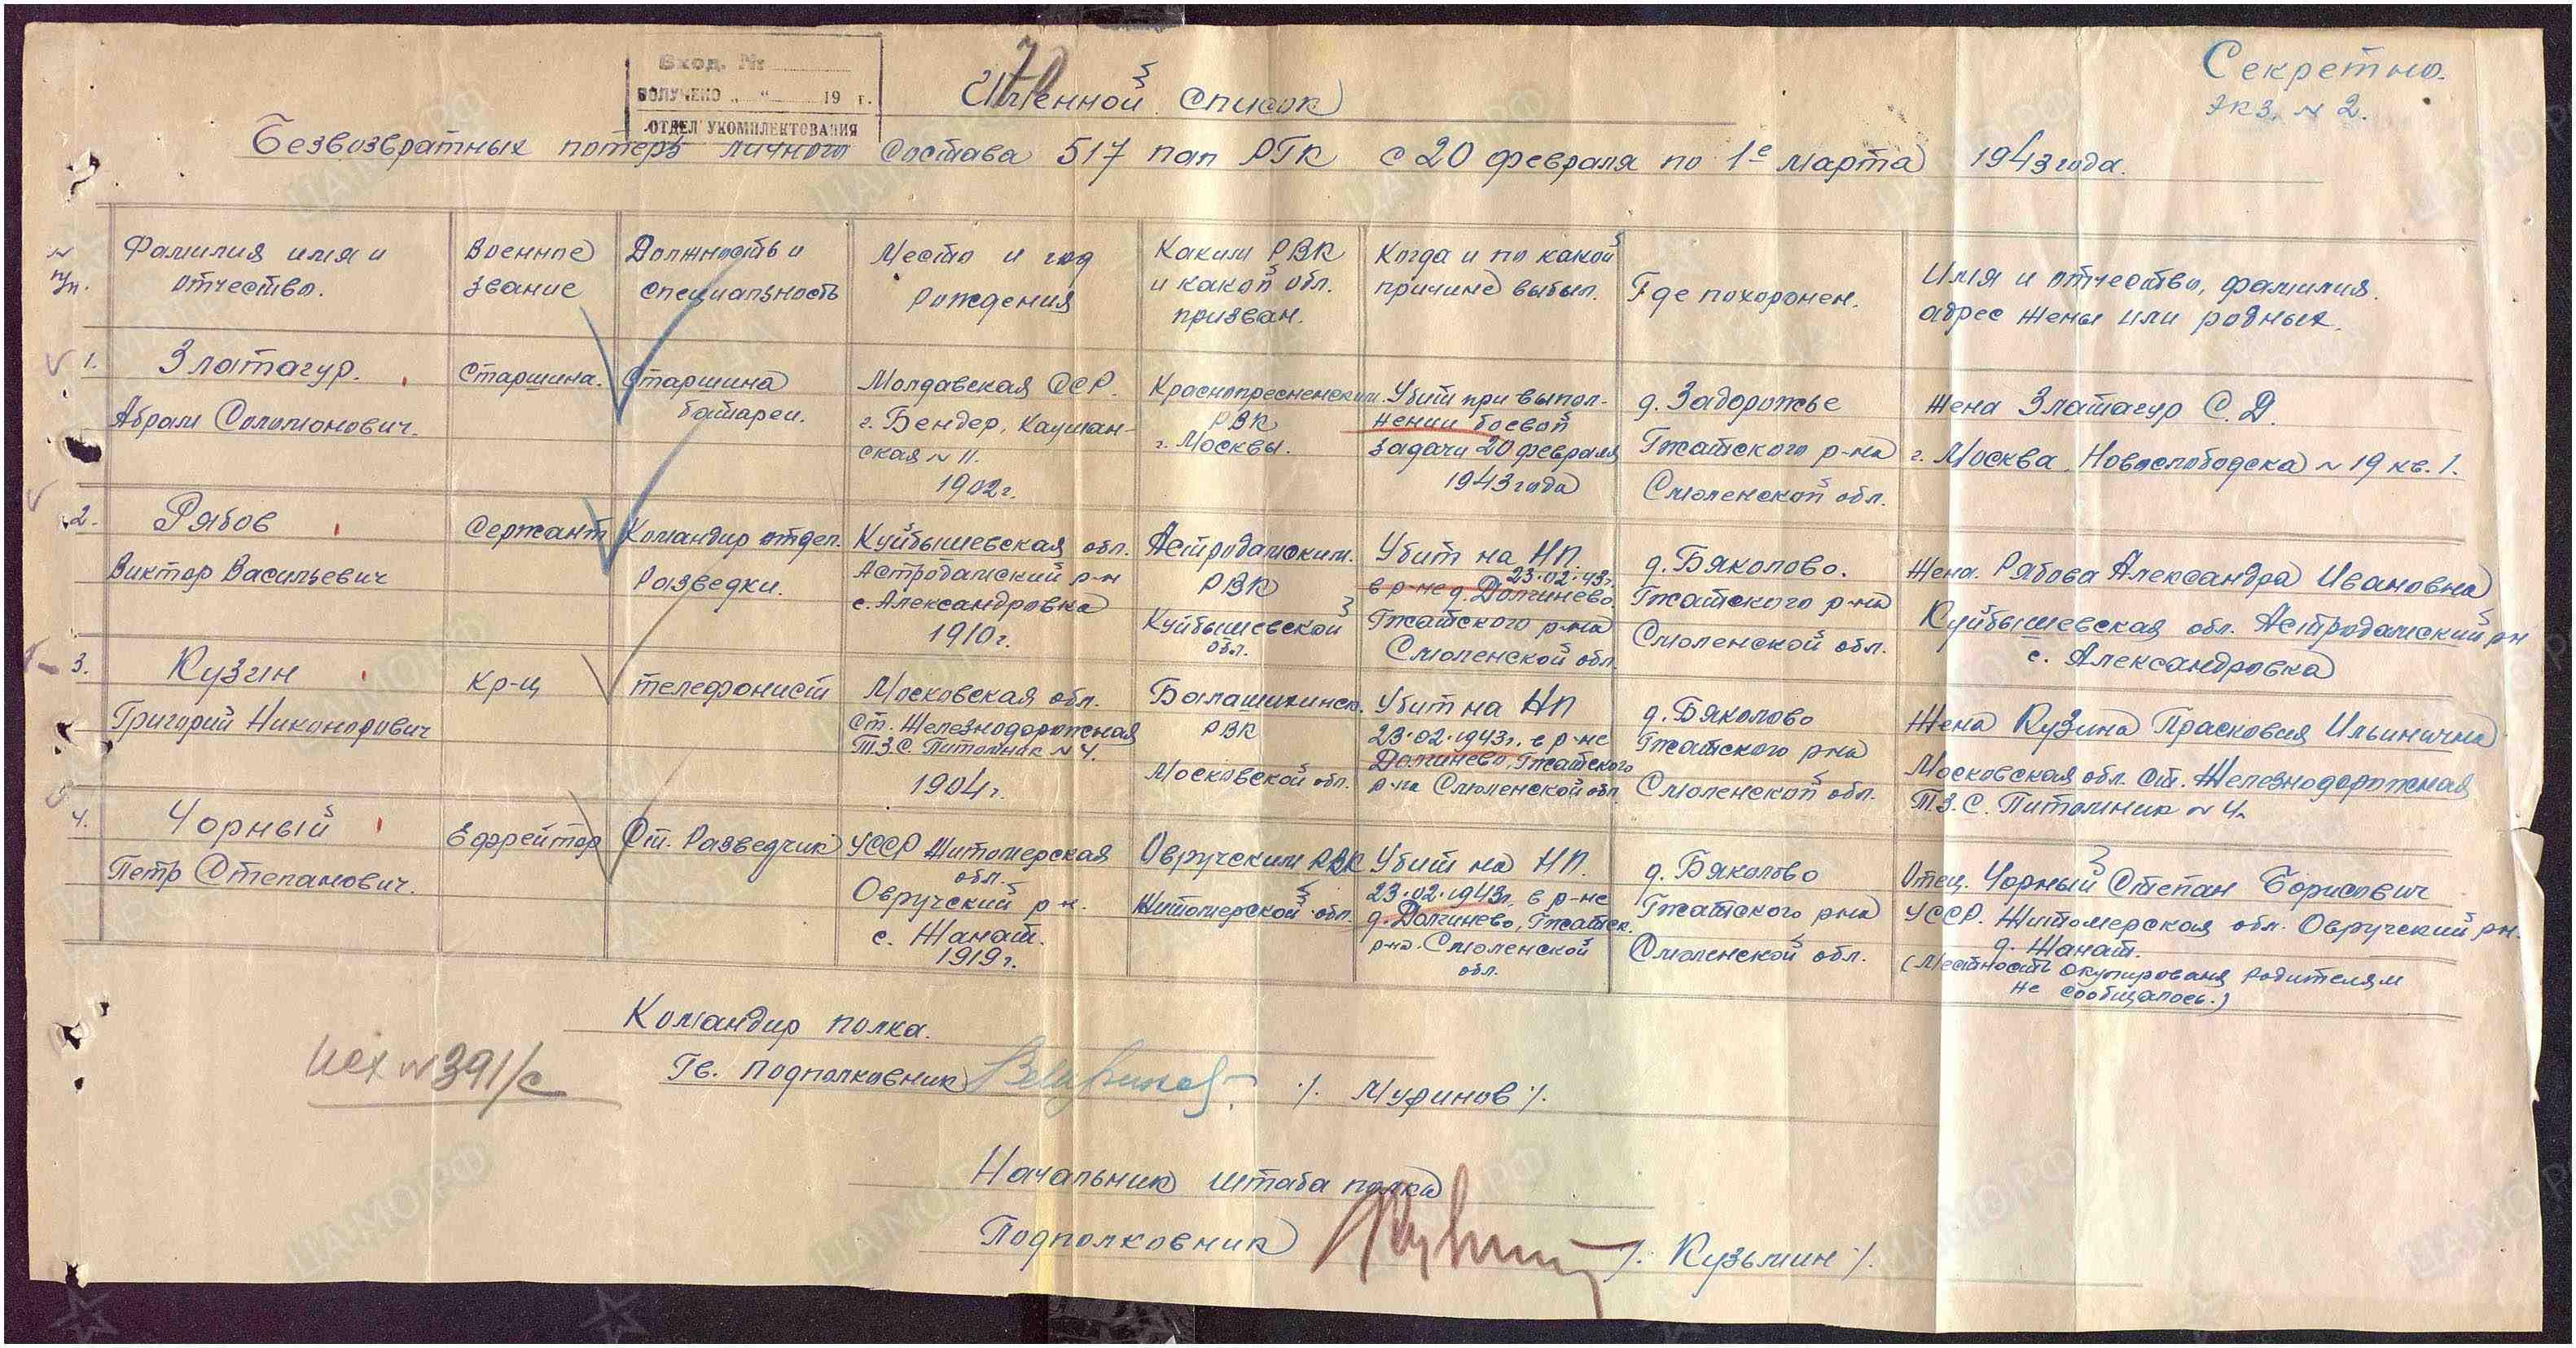 Секретно.
Экз. № 2.
Вход. №
ПОЛУЧЕНО „ “ 19 г.
ОТДЕЛ УКОМПЛЕКТОВАНИЯ
70
Именной список
Безвозвратных потерь личного состава 517 пап РГК с 20 февраля по 1е марта 1943 года.
№ п/п.
Фамилия имя и
отчество.
Военное
звание
Должность и
специальность
Место и год
рождения
Каким РВК
и какой обл.
призван.
Когда и по какой
причине выбыл.
Где похоронен.
Имя и отчество, фамилия.
адрес жены или родных.
1.
Златагур.
Абрам Соломонович.
Старшина.
Старшина
батареи.
Молдавская ССР.
г. Бендер, Каушан-
ская № 11.
1902г.
Краснопресненским
РВК
г. Москвы.
Убит при выпол-
нении боевой
задачи 20 февраля
1943 года
д. Задорожье
Гжатского р-на
Смоленской обл.
Жена Златагур С. Д.
г. Москва. Новослободска № 19 кв. 1.
2.
Рябов
Виктор Васильевич
Сержант
Командир отдел.
Разведки.
Куйбышевская обл.
Астродамский р-н
с. Александровка
1910г.
Астродамским.
РВК
Куйбышевской
обл.
Убит на НП.
23.02.43г.
в р-не д. Долгинево
Гжатского р-на
Смоленской обл.
д. Бяколово.
Гжатского р-на
Смоленской обл.
Жена. Рябова Александра Ивановна
Куйбышевская обл. Астродамский рн
с. Александровка
3.
Кузин
Григорий Никонорович
Кр-ц
телефонист
Московская обл.
Ст. Железнодорожная
Т.З.С. Питомник № 4.
1904г.
Балашихинск.
РВК
Московской обл.
Убит на НП
23.02.1943г. в р-не
Долгинево, Гжатского
р-на Смоленской обл.
д. Бяколово
Гжатского р-на
Смоленской обл.
Жена Кузина Прасковия Ильинична
Московская обл. ст. Железнодорожная
Т.З.С. Питомник № 4.
4.
Чорный
Петр Степанович.
Ефрейтор
Ст. Разведчик
УССР Житомерская
обл.
Овручский р-н.
с. Жанат.
1919г.
Овручским РВК
Житомерской обл.
Убит на НП.
23.02.1943г. в р-не
д. Долгинево, Гжатск.
р-на. Смоленской
обл.
д. Бяколово
Гжатского р-на
Смоленской обл.
Отец. Чорный Степан Борисович
УССР. Житомерская обл. Овручский рн.
д. Жанат.
(Местность окупирована родителям
не сообщалось.)
Командир полка.
Гв. Подполковник /. Муфинов /.
исх № 391/с
Начальник штаба полка
Подполковник /. Кузьмин /.
ЦАМО.РФ